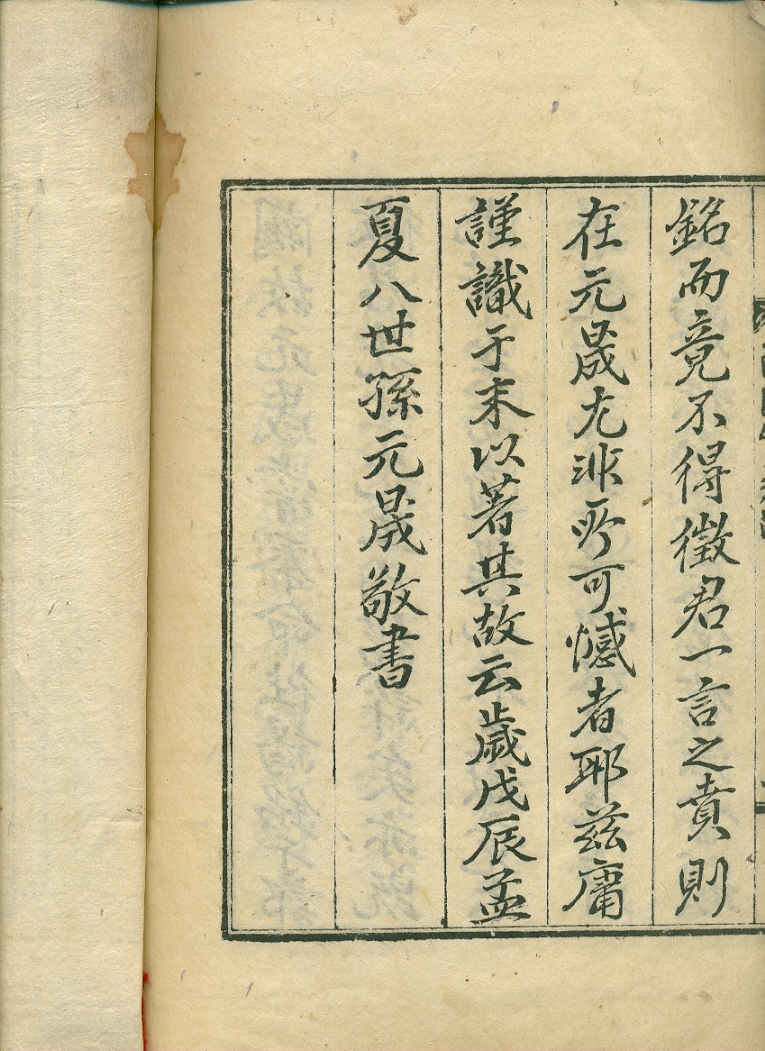 銘而竟不得徵君一言之賁則
在元晟尤非所可憾者耶茲庸
謹識于末以著其故云歲戊辰孟
夏八世孫元晟敬書